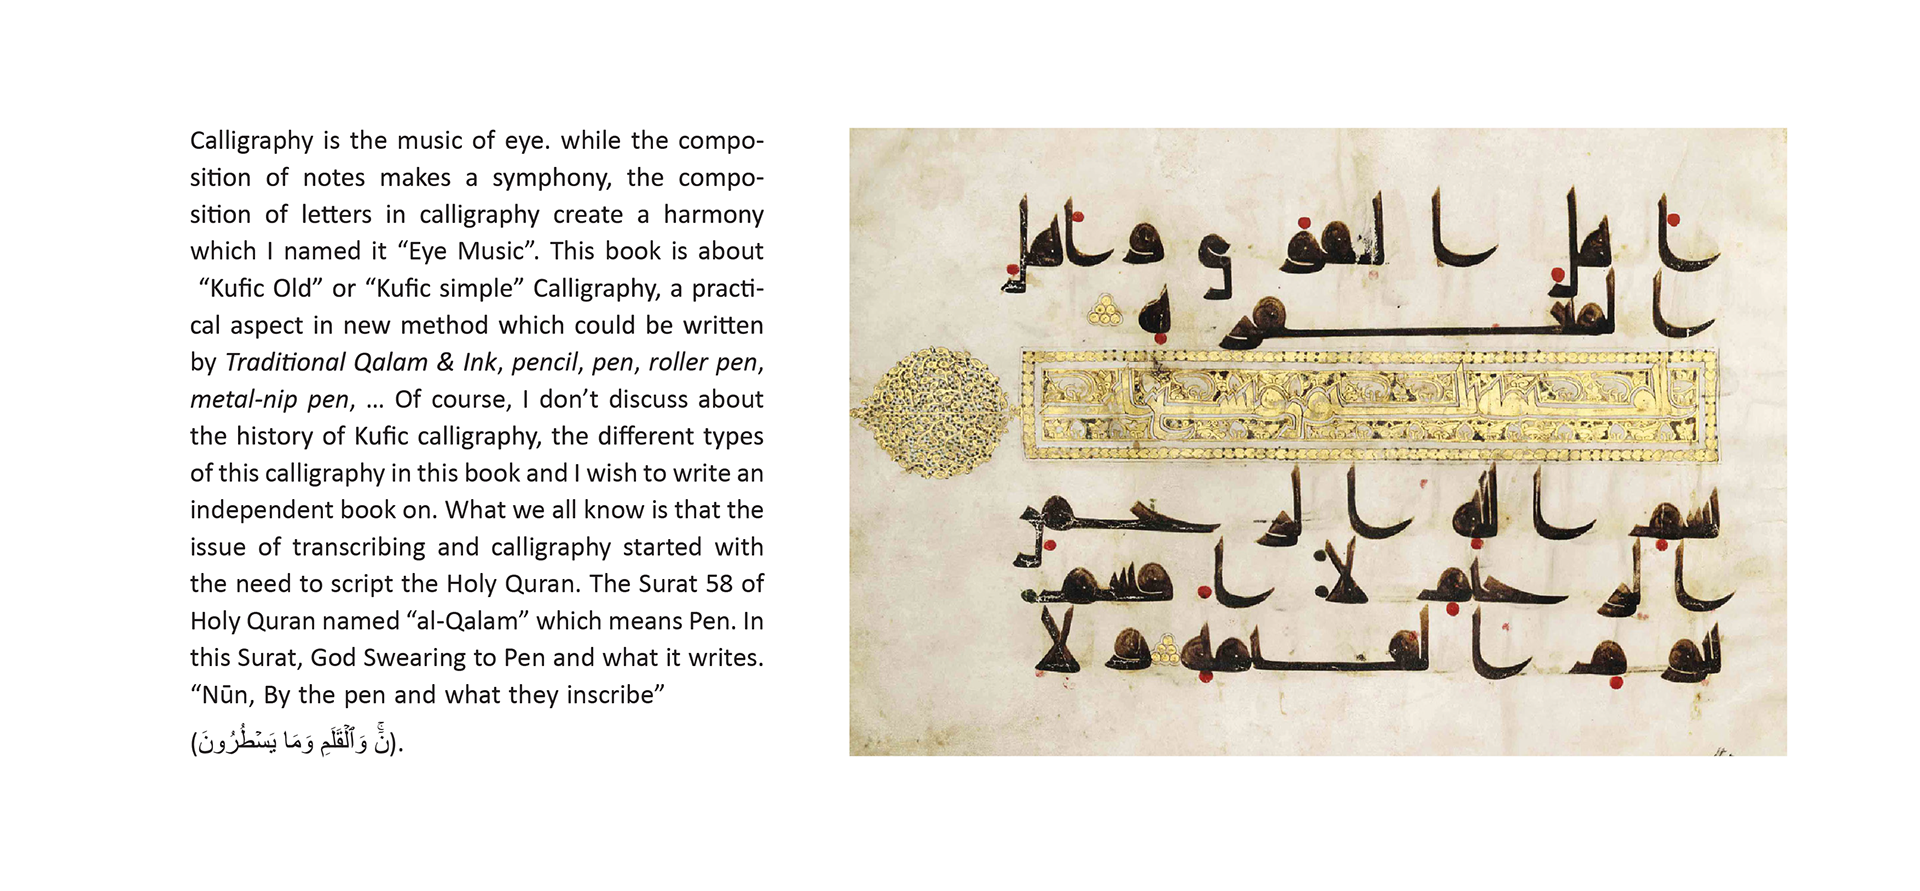 Calligraphy is the music of eye. while the compo-
sition of notes makes a symphony, the compo-
sition of letters in calligraphy create a harmony
which I named it “Eye Music”. This book is about
“Kufic Old” or “Kufic simple” Calligraphy, a practi-
cal aspect in new method which could be written
by Traditional Qalam & Ink, pencil, pen, roller pen,
metal-nip pen, … Of course, I don’t discuss about
the history of Kufic calligraphy, the different types
of this calligraphy in this book and I wish to write an
independent book on. What we all know is that the
issue of transcribing and calligraphy started with
the need to script the Holy Quran. The Surat 58 of
Holy Quran named “al-Qalam” which means Pen. In
this Surat, God Swearing to Pen and what it writes.
“Nūn, By the pen and what they inscribe”
(نٓۚ وَٱلۡقَلَمِ وَمَا يَسۡطُرُونَ).
اهل التقوى واهل
المغفرة
بسم الله الرحمن
الرحيم لا اقسم
بيوم القيمة ولا